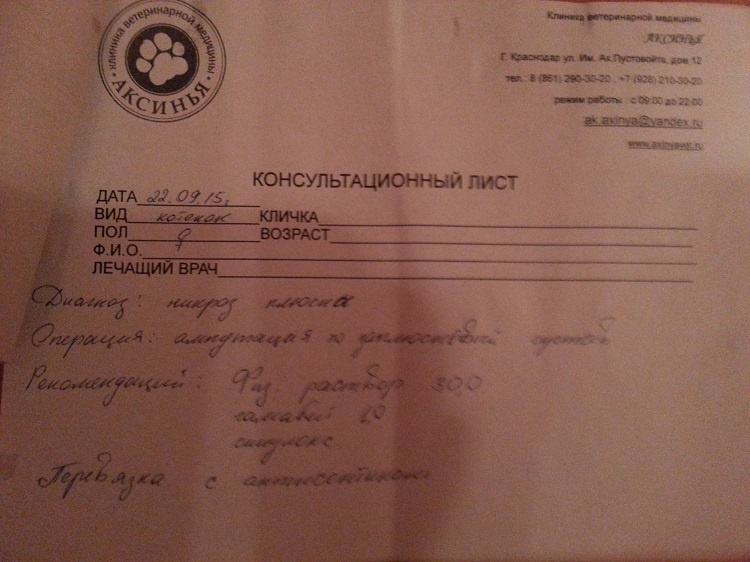 КЛИНИКА ВЕТЕРИНАРНОЙ МЕДИЦИНЫ
АКСИНЬЯ
Клиника ветеринарной медицины
АКСИНЬЯ
Г. Краснодар ул. Им. Ак.Пустовойта, дом 12
тел.: 8 (861) 290-30-20 , +7 (928) 210-30-20
режим работы : с 09:00 до 22:00
ak.axinya@yandex.ru
www.axinyavet.ru
КОНСУЛЬТАЦИОННЫЙ ЛИСТ
ДАТА 22.09.15.
ВИД котенок КЛИЧКА
ПОЛ ♀ ВОЗРАСТ
Ф.И.О.
ЛЕЧАЩИЙ ВРАЧ
Диагноз: никроз плюсны
Операция: ампутация по сустав
Рекомендаций: Физ. раствор 30,0
гамавит 1,0
синулокс
Перевязка с антисептиком